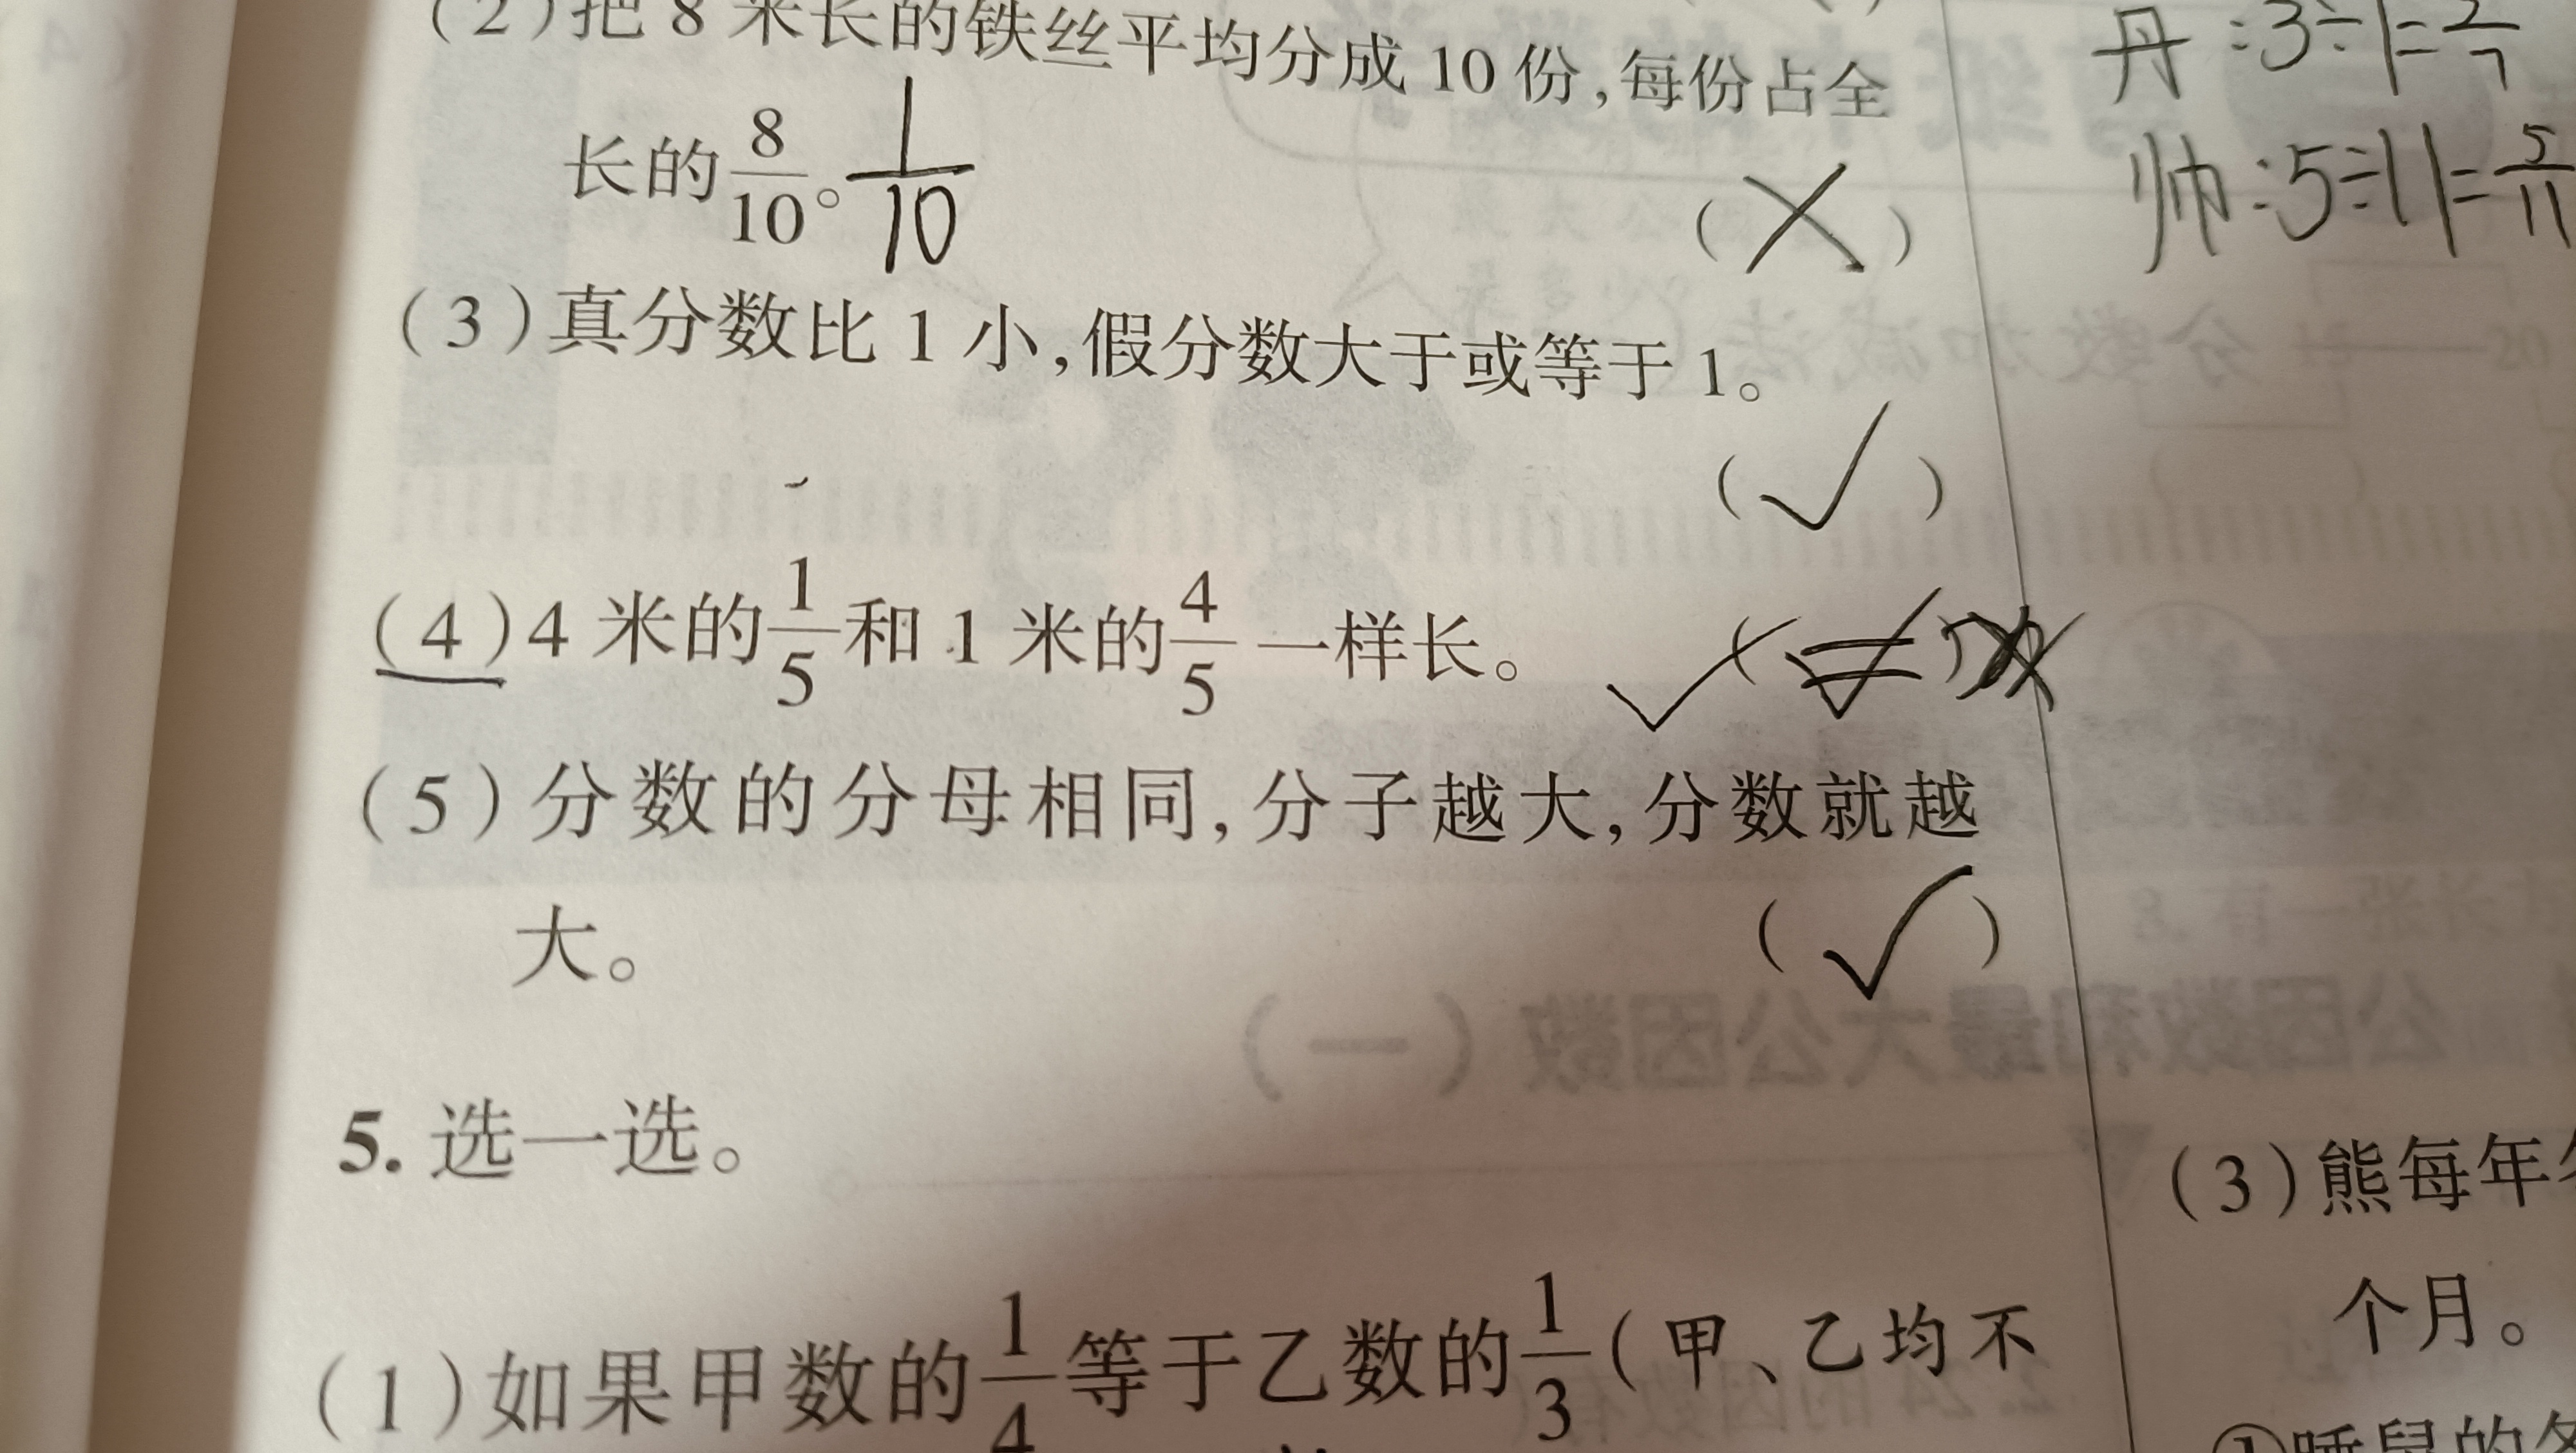 (2)把8米长的铁丝平均分成10份,每份占全
长的8/10。1/10 (×)
(3)真分数比1小,假分数大于或等于1。
(√)
(4)4米的1/5和1米的4/5一样长。 √(
(5)分数的分母相同,分子越大,分数就越
大。 (√)
5.选一选。
(1)如果甲数的1/4等于乙数的1/3(甲、乙均不
丹:3÷
帅:5÷11=5/11
(3)熊每年冬
个月。
①睡鼠的冬